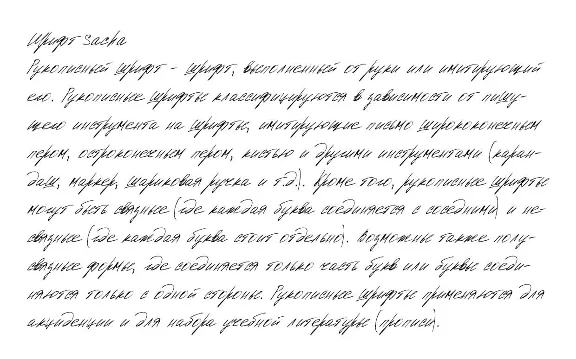 Шрифт Sacha
Рукописный шрифт - шрифт, выполненный от руки или имитирующий
его. Рукописные шрифты классифицируются в зависимости от пишу-
щего инструмента на шрифты, имитирующие письмо ширококонечным
пером, остроконечным пером, кистью и другими инструментами (каран-
даш, маркер, шариковая ручка и т.д.). Кроме того, рукописные шрифты
могут быть связные (где каждая буква соединяется с соседними) и не-
связные (где каждая буква стоит отдельно). Возможны также полу-
связные формы, где соединяется только часть букв или буквы соеди-
няются только с одной стороны. Рукописные шрифты применяются для
акциденции и для набора учебной литературы (прописи).